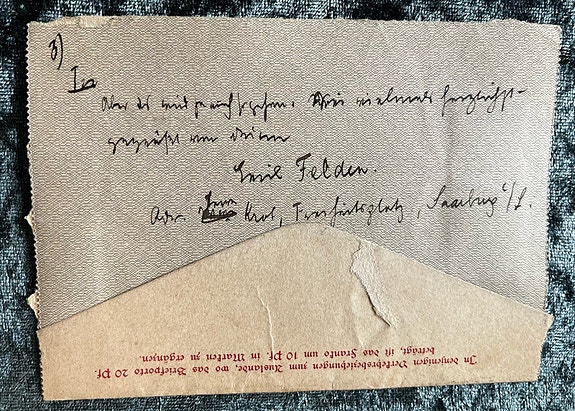 3)
Aber es wird ja auch so gehen. Sei vielmals herzlichst
gegrüßt von deinem
Emil Felden.
Adr. Krol, Freiheitsplatz, Saarburg i/L.
In denjenigen Verkehrsbeziehungen zum Auslande, wo das Briefporto 20 Pf.
beträgt, ist das Franko um 10 Pf. in Marken zu ergänzen.